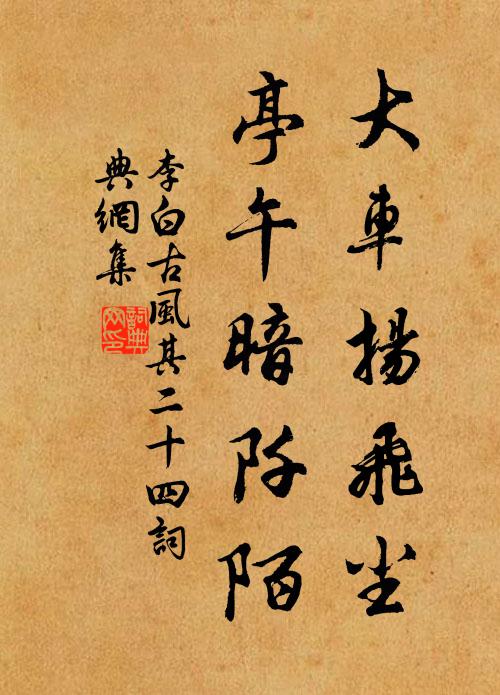 大車揚飛尘
亭午暗阡陌
李白古風其二十四詞
典網集
詞典
网印